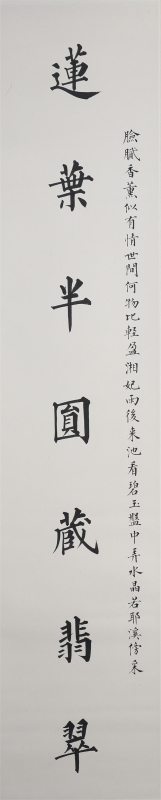 臉膩香薰似有情世間何物比輕盈湘妃雨後來池看碧玉盤中弄水晶若耶溪傍采
蓮葉半圓藏翡翠